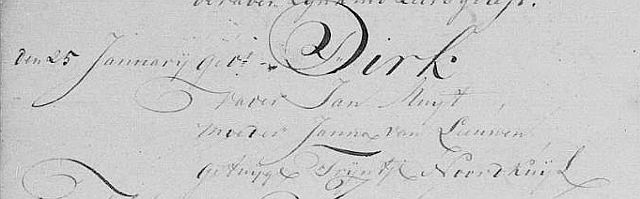 den 25 Januarij geb. Dirk
Vader Jan Kuyt,
Moeder Janna van Leuwen,
Getuyge Trijntje Noordkuijl